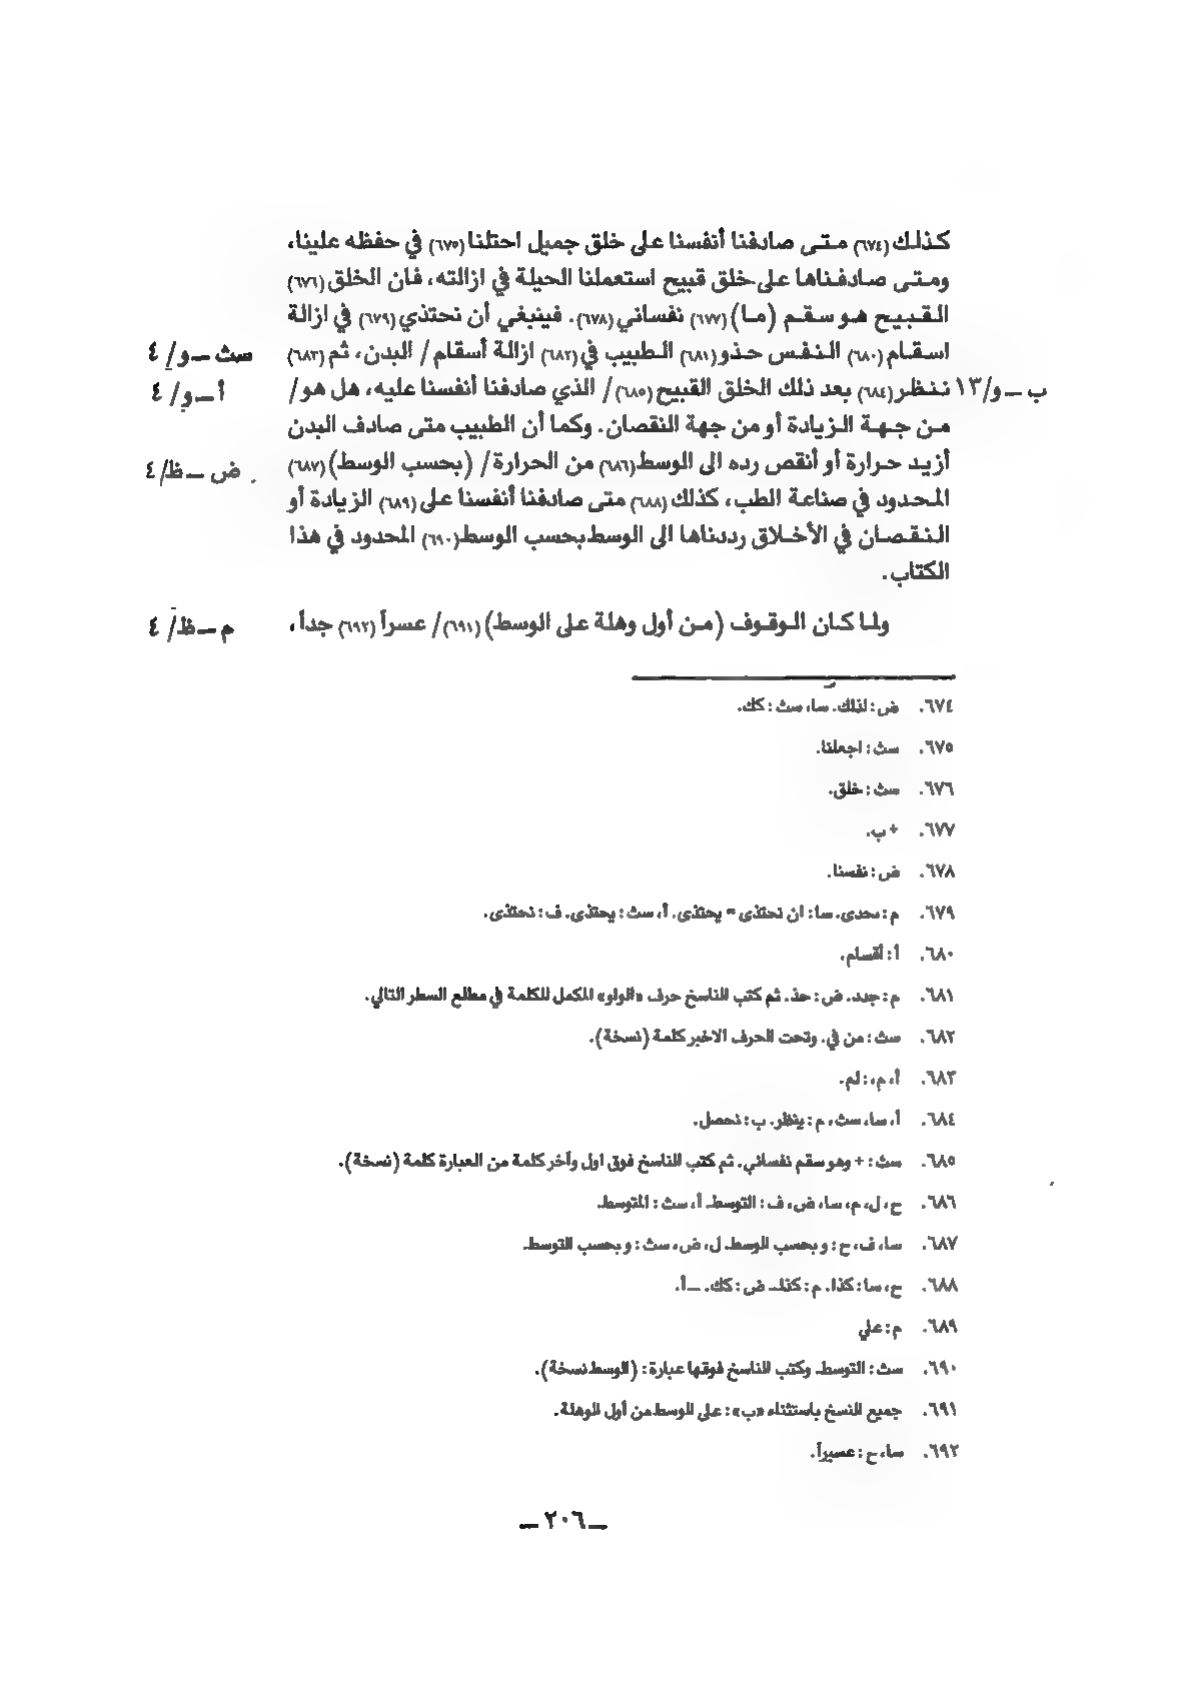 كذلك (٦٧٤) متى صادفنا أنفسنا على خلق جميل احتلنا (٦٧٥) في حفظه علينا،
ومتى صادفناها على خلق قبيح استعملنا الحيلة في ازالته، فان الخلق (٦٧٦)
القبيح هو سقم (ما) (٦٧٧) نفساني (٦٧٨). فينبغي أن نحتذي (٦٧٩) في ازالة
اسقام (٦٨٠) النفس حذو (٦٨١) الطبيب في (٦٨٢) ازالة أسقام / البدن، ثم (٦٨٣) سث – و/ ٤
ب – و/١٣ ننظر (٦٨٤) بعد ذلك الخلق القبيح (٦٨٥) / الذي صادفنا أنفسنا عليه، هل هو / أ – و/ ٤
من جهة الزيادة أو من جهة النقصان. وكما أن الطبيب متى صادف البدن
أزيد حرارة أو أنقص رده الى الوسط (٦٨٦) من الحرارة / (بحسب الوسط) (٦٨٧) ض – ظ/ ٤
المحدود في صناعة الطب، كذلك (٦٨٨) متى صادفنا أنفسنا على (٦٨٩) الزيادة أو
النقصان في الأخلاق رددناها الى الوسط بحسب الوسط (٦٩٠) المحدود في هذا
الكتاب.
ولما كان الوقوف (من أول وهلة على الوسط) (٦٩١) / عسراً (٦٩٢) جداً، م – ظ/ ٤
٦٧٤. ض: لذلك. سا، سث: كك.
٦٧٥. سث: اجعلنا.
٦٧٦. سث: خلق.
٦٧٧. + ب.
٦٧٨. ض: نفسنا.
٦٧٩. م: محدى. سا: ان نحتذى = يحتذى. أ، سث: يحتذى. ف: نحتذى.
٦٨٠. أ: أقسام.
٦٨١. م: جدد. ض: حذ. ثم كتب الناسخ حرف «الواو» المكمل للكلمة في مطلع السطر التالي.
٦٨٢. سث: من في. وتحت الحرف الاخير كلمة (نسخة).
٦٨٣. أ، م،: لم.
٦٨٤. أ، سا، سث، م: ينظر. ب: نحصل.
٦٨٥. سث: + وهو سقم نفساني. ثم كتب الناسخ فوق اول وآخر كلمة من العبارة كلمة (نسخة).
٦٨٦. ح، ل، م، سا، ض، ف: التوسط. أ، سث: المتوسط.
٦٨٧. سا، ف، ح: وبحسب الوسط. ل، ض، سث: وبحسب التوسط.
٦٨٨. ح، سا: كذا. م: كذلـ ض: كك. – أ.
٦٨٩. م: علي
٦٩٠. سث: التوسط. وكتب الناسخ فوقها عبارة: (الوسط نسخة).
٦٩١. جميع النسخ باستثناء «ب»: على الوسط من أول الوهلة.
٦٩٢. سا، ح: عسيراً.
– ٢٠٦ –